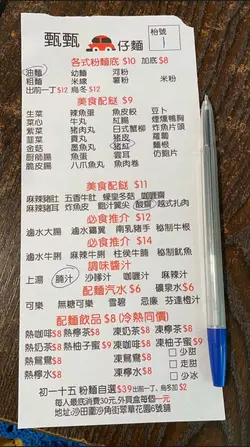 甄甄 仔麵
枱號
1
各式粉麵底 $10 加底 $8
油麵 幼麵 河粉
粗麵 米線 薯粉 米粉
出前一丁 $12 烏冬 $12
美食配餸 $9
生菜 辣魚蛋 魚皮餃 豆卜
菜心 牛丸 紅腸 煙燻鴨胸
紫菜 豬肉丸 日式蟹柳 炸魚片頭
韮菜 貢丸 豬皮 蘿蔔
金菇 墨魚丸 豬紅 麵根
廚師腸 魚蛋 雲耳 仿鮑片
脆皮腸 八爪魚丸 魚肉卷
美食配餸 $11
麻辣豬肚 五香牛肚 蠔皇冬菇 咖喱齋
麻辣豬耳 炸魚皮 鮑汁翼尖 酸齋 越式扎肉
必食推介 $12
滷水大腸 滷水雞翼 南乳豬手 秘制牛肚
必食推介 $14
滷水牛脷 麻辣牛脷 柱侯牛腩 秘制魷魚
調味醬汁
上湯 腩汁 沙嗲汁 咖喱汁 麻辣汁
配麵汽水 $6 礦泉水 $6
可樂 無糖可樂 雪碧 忌廉 芬達橙汁
配麵飲品 $8 (冷熱同價)
熱咖啡 $8 熱檸茶 $8 凍奶茶 $8 凍檸茶 $8
熱奶茶 $8 熱柚子蜜 $9 凍咖啡 $8 凍柚子蜜 $9
熱鴛鴦 $8 凍鴛鴦 $8 少甜
熱檸水 $8 凍檸水 $8 走甜
少冰
初一十五 粉麵自選 $39 出前一丁、烏冬加 $2
每人最底消費30元,外賣盒每個一元
地址:沙田圍沙角街翠華花園6號舖